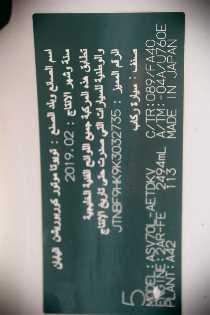 اسم المصنع وبلد الصنع : تويوتا موتور كوربوريشن اليابان
سنة وشهر الإنتاج : 2019.02
تطابق هذه المركبة جميع اللوائح الفنية الخليجية
والوطنية للسيارات التي صدرت حتى تاريخ الإنتاج
الرقم المميز : JTNBF9HK9K3032735
صنف : سيارة ركاب
MODEL: ASV70L-AETDKV
ENGINE: 2AR-FE 2494mL
PLANT: A42 113
C/TR: 089/FA40
A/TM: -04A/U760E
MADE IN JAPAN